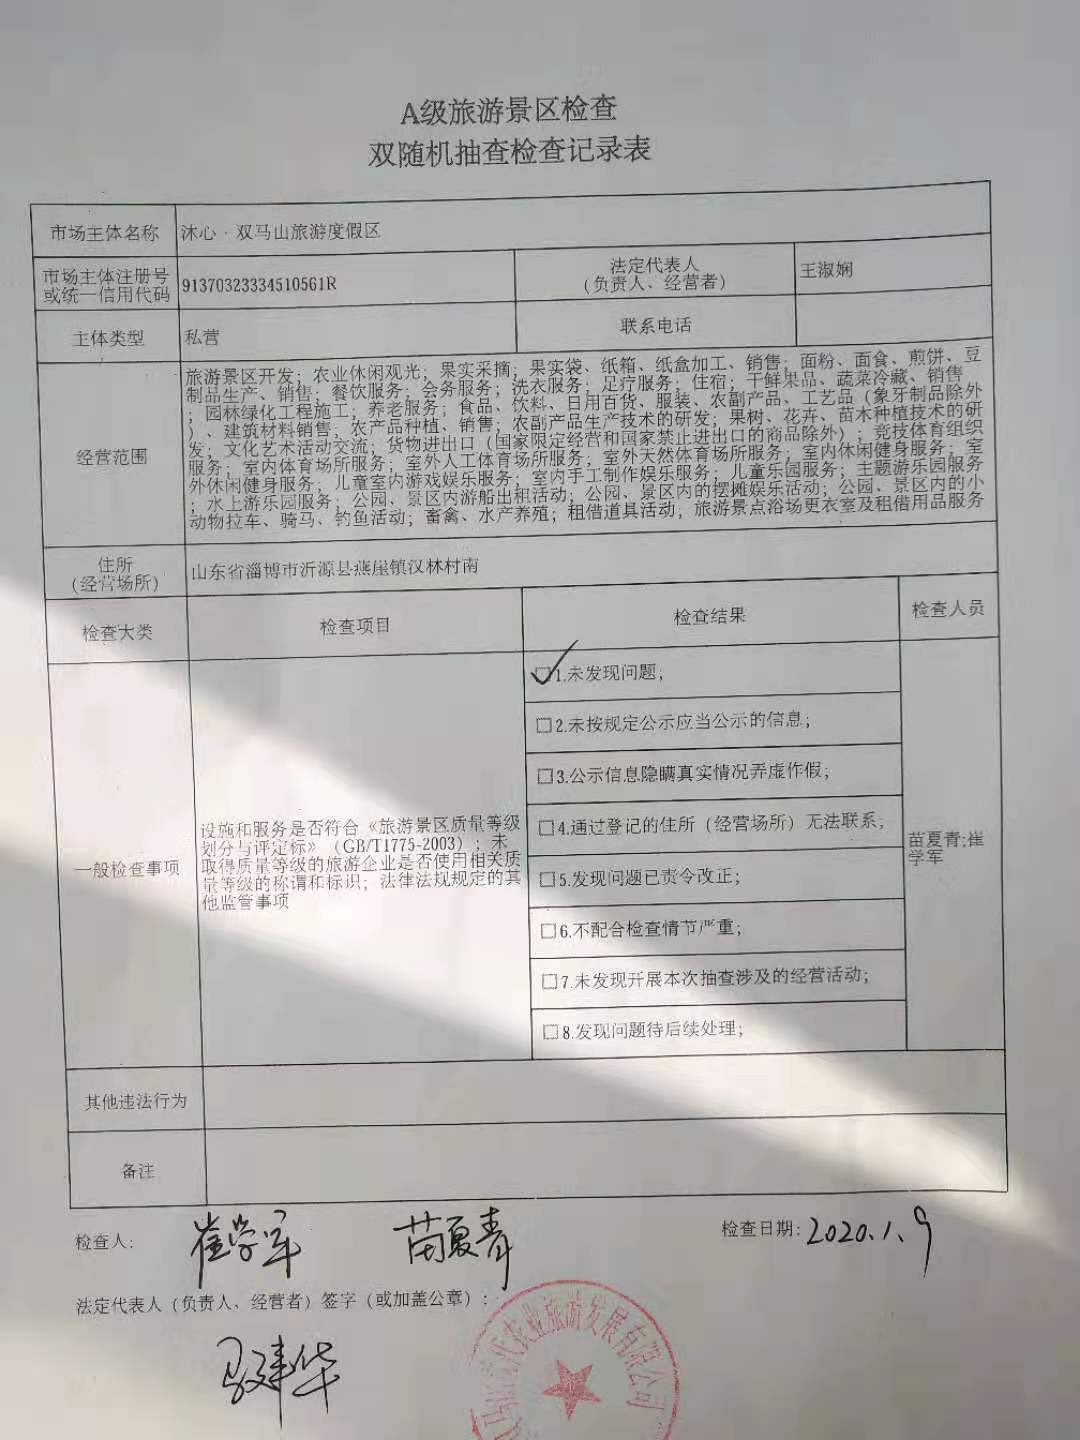 A级旅游景区检查
双随机抽查检查记录表
市场主体名称
沐心·双马山旅游度假区
市场主体注册号
或统一信用代码
91370323334510561R
法定代表人
(负责人、经营者)
王淑娴
主体类型
私营
联系电话
经营范围
旅游景区开发；农业休闲观光；果实采摘；果实袋、纸箱、纸盒加工、销售；面粉、面食、煎饼、豆
制品生产、销售；餐饮服务；会务服务；洗衣服务；足疗服务；住宿；干鲜果品、蔬菜冷藏、销售
；园林绿化工程施工；养老服务；食品、饮料、日用百货、服装、农副产品、工艺品（象牙制品除外
）、建筑材料销售；农产品种植、销售；农副产品生产技术的研发；果树、花卉、苗木种植技术的研
发；文化艺术活动交流；货物进出口（国家限定经营和国家禁止进出口的商品除外）；竞技体育组织
服务；室内体育场所服务；室外人工体育场所服务；室外天然体育场所服务；室内休闲健身服务；室
外休闲健身服务；儿童室内游戏娱乐服务；室内手工制作娱乐服务；儿童乐园服务；主题游乐园服务
；水上游乐园服务；公园、景区内游船出租活动；公园、景区内的摆摊娱乐活动；公园、景区内的小
动物拉车、骑马、钓鱼活动；畜禽、水产养殖；租借道具活动；旅游景点浴场更衣室及租借用品服务
住所
(经营场所)
山东省淄博市沂源县燕崖镇汉林村南
检查大类
检查项目
检查结果
检查人员
一般检查事项
设施和服务是否符合《旅游景区质量等级
划分与评定标》（GB/T1775-2003）；未
取得质量等级的旅游企业是否使用相关质
量等级的称谓和标识；法律法规规定的其
他监管事项
☑1.未发现问题；
□2.未按规定公示应当公示的信息；
□3.公示信息隐瞒真实情况弄虚作假；
□4.通过登记的住所（经营场所）无法联系；
□5.发现问题已责令改正；
□6.不配合检查情节严重；
□7.未发现开展本次抽查涉及的经营活动；
□8.发现问题待后续处理；
苗夏青;崔
学军
其他违法行为
备注
检查人：崔学军 苗夏青
检查日期：2020.1.9
法定代表人（负责人、经营者）签字（或加盖公章）：
农业旅游发展有限公司